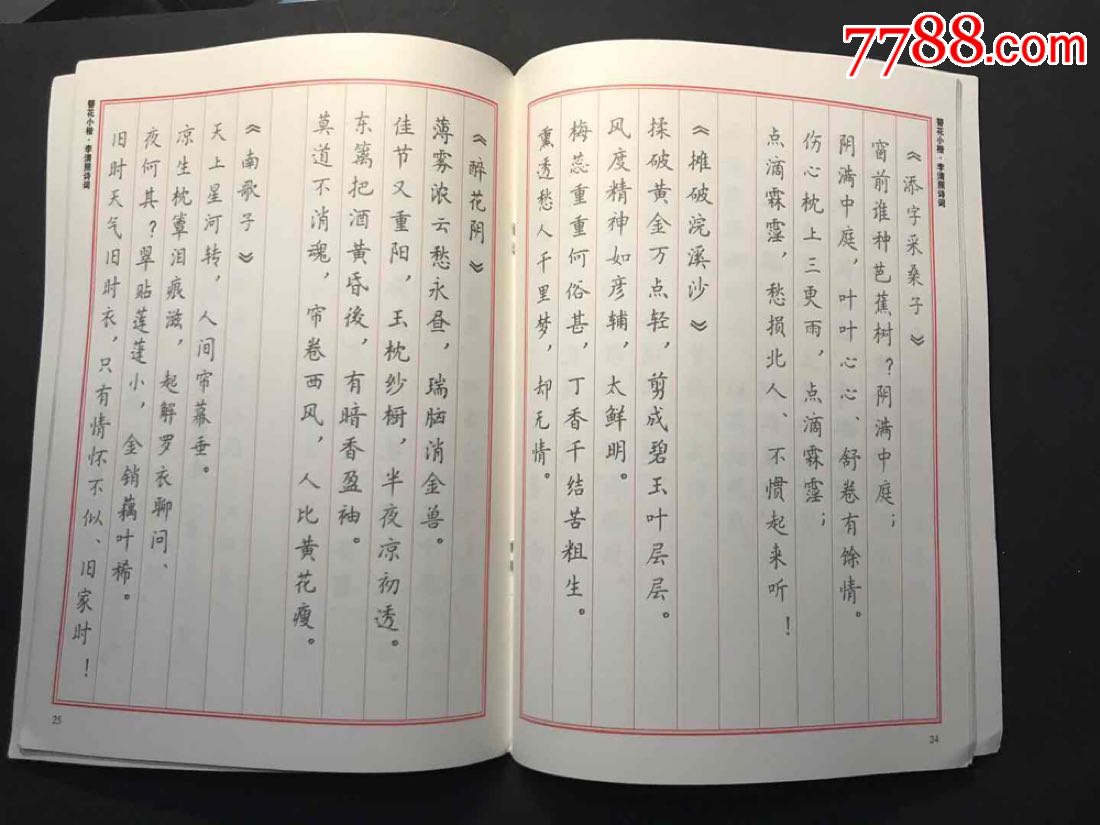 7788.com
簪花小楷·李清照诗词
《添字采桑子》
窗前谁种芭蕉树？阴满中庭；
阴满中庭，叶叶心心、舒卷有馀情。
伤心枕上三更雨，点滴霖霪；
点滴霖霪，愁损北人、不惯起来听！
《摊破浣溪沙》
揉破黄金万点轻，剪成碧玉叶层层。
风度精神如彦辅，太鲜明。
梅蕊重重何俗甚，丁香千结苦粗生。
熏透愁人千里梦，却无情。
24
簪花小楷·李清照诗词
《醉花阴》
薄雾浓云愁永昼，瑞脑消金兽。
佳节又重阳，玉枕纱橱，半夜凉初透。
东篱把酒黄昏後，有暗香盈袖。
莫道不消魂，帘卷西风，人比黄花瘦。
《南歌子》
天上星河转，人间帘幕垂。
凉生枕簟泪痕滋，起解罗衣聊问、
夜何其？翠贴莲蓬小，金销藕叶稀。
旧时天气旧时衣，只有情怀不似、旧家时！
25